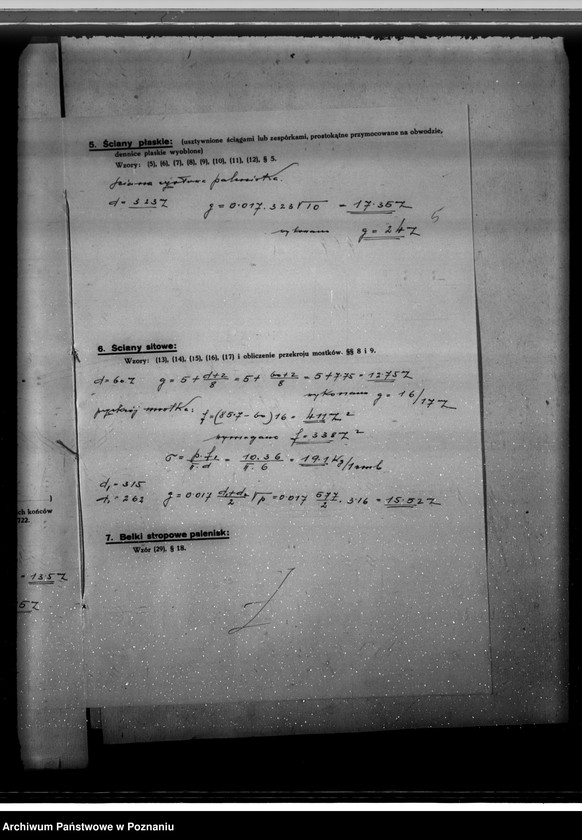 5. Ściany płaskie: (usztywnione ściągami lub zespórkami, prostokątne przymocowane na obwodzie,
dennice płaskie wyoblone)
Wzory: (5), (6), (7), (8), (9), (10), (11), (12), § 5.
d = 323 Z g = 0·017 . 323 √10 = 17·35 Z
wykonano g = 24 Z
5
6. Ściany sitowe:
Wzory: (13), (14), (15), (16), (17) i obliczenie przekroju mostków. §§ 8 i 9.
d = 60 Z g = 5 + d+2/8 = 5 + 60+2/8 = 5 + 7·75 = 12·75 Z
wykonano g = 16/17 Z
przekrój mostka: f = (85·7 - 60) 16 = 411 Z²
wymagane f = 338 Z²
d₁ = 315
g = 0·017 d₁+d₂/2 √p = 0·017 577/2 . 3·16 = 15·52 Z
7. Belki stropowe palenisk:
Wzór (29). § 18.
)
ch końców
722.
= 13·5 Z
5 Z
Archiwum Państwowe w Poznaniu